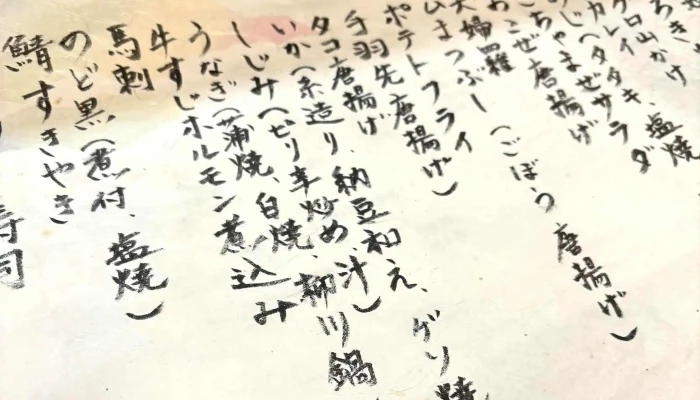 山かけ
カレイ(タタキ、塩焼
ごちゃまぜサラダ
おこぜ唐揚げ
ひまつぶし(ごぼう唐揚げ)
ポテトフライ
手羽先唐揚げ)
タコ唐揚げ
いか(糸造り、納豆和え、ゲソ焼
しじみ(ピリ辛炒め、汁)
うなぎ(蒲焼、白焼、柳川鍋
牛すじオルモン煮込み
馬刺
のど黒(煮付、塩焼)
鯖すきやき
寿司